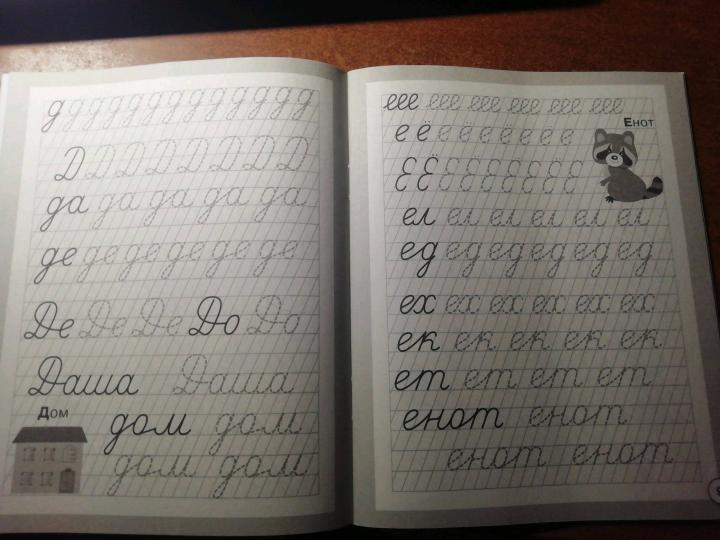 д д д д д д д д д д д д д
Д Д Д Д Д Д Д Д
да да да да да
де де де де де де
Де Де Де До До
Даша Даша
Дом
дом дом
дом дом
еее еее еее еее еее еее
Енот
е ё е ё е ё е ё е
Е Ё Е Ё Е Ё Е Ё Е
ел ел ел ел ел ел
ед ед ед ед ед ед
ех ех ех ех ех ех
ек ек ек ек ек
ет ет ет ет
енот енот
енот енот